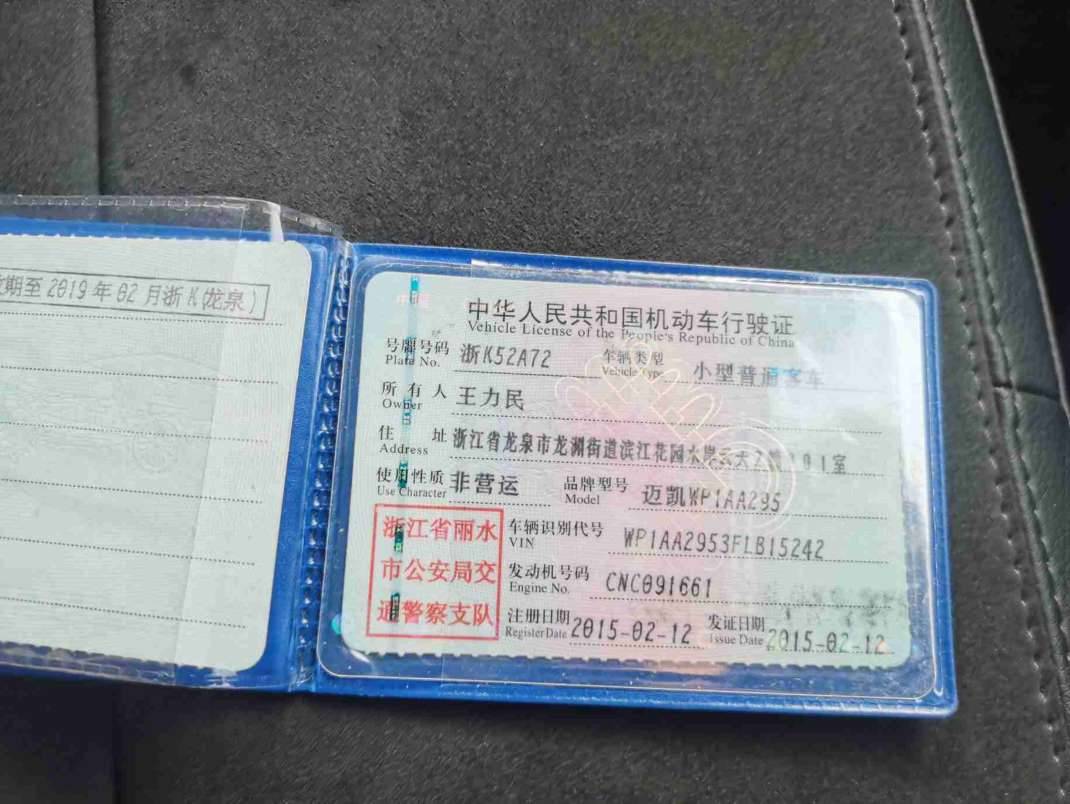 期至2019年02月浙K(龙泉)
中华人民共和国机动车行驶证
Vehicle License of the People's Republic of China
号牌号码 浙K52A72 车辆类型 小型普通客车
Plate No. Vehicle Type
所有人 王力民
Owner
住址 浙江省龙泉市龙渊街道滨江花园水岸 101室
Address
使用性质 非营运 品牌型号 迈凯WP1AA295
Use Character Model
浙江省丽水
市公安局交
通警察支队
车辆识别代号 WP1AA2953FLB15242
VIN
发动机号码 CNC091661
Engine No.
注册日期 2015-02-12 发证日期 2015-02-12
Register Date Issue Date